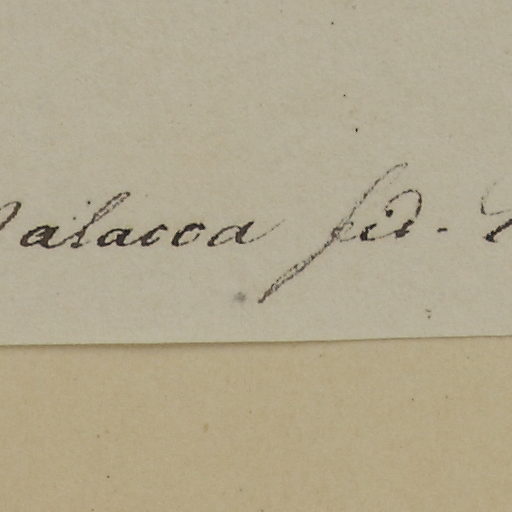 alacca fid.